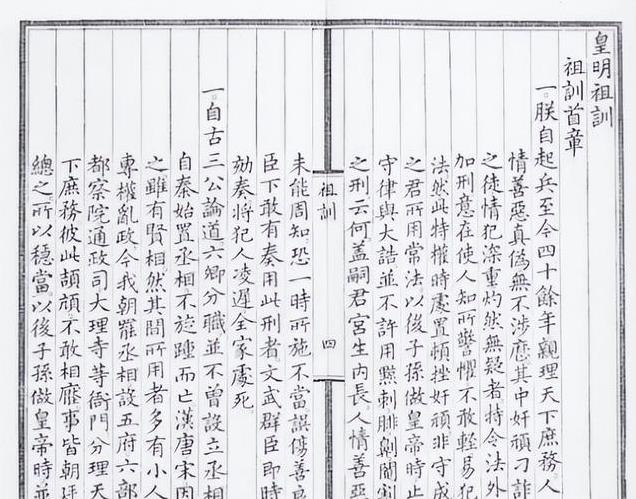 皇明祖訓
祖訓首章
一。朕自起兵至今四十餘年親理天下庶務人
情善惡真偽無不涉歷其中奸頑刁詐
之徒情犯深重灼然無疑者特令法外
加刑意在使人知所警懼不敢輕易犯
法然此特權時處置頓挫奸頑非守成
之君所用常法以後子孫做皇帝時止
守律與大誥並不許用黥刺腓劓閹割
之刑云何蓋嗣君宮生內長。人情善惡
祖訓
四
未能周知恐一時所施不當誤傷善良
臣下敢有奏用此刑者文武群臣即時
劾奏將犯人凌遲全家處死
一。自古三公論道六卿分職並不曾設立丞相
自秦始置丞相不旋踵而亡漢唐宋因
之雖有賢相然其間所用者多有小人
專權亂政今我朝罷丞相設五府六部
都察院通政司大理寺等衙門分理天
下庶務彼此頡頏不敢相壓事皆朝廷
總之。所以穩當以後子孫做皇帝時並